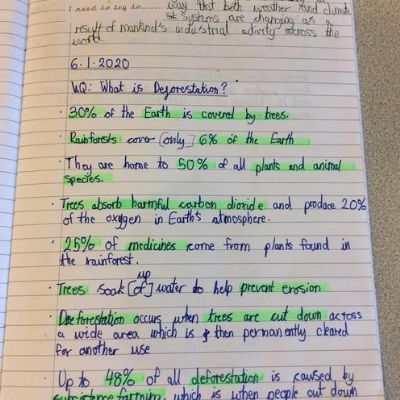 I need to try to......... way that both weather and climate
systems are changing as a
result of mankind's industrial activity across the
world.
6.1.2020
LQ: What is Deforestation?
· 30% of the Earth is covered by trees.
· Rainforests cover [only] 6% of the Earth
· They are home to 50% of all plants and animal
species.
· Trees absorb harmful carbon dioxide and produce 20%
of the oxygen in Earth's atmosphere.
· 25% of medicines come from plants found in
the rainforest.
up
· Trees soak [of] water to help prevent erosion
· Deforestation occurs when trees are cut down across
a wide area which is then permanently cleared
for another use
· Up to 48% of all deforestation is caused by
subsistence farming, which is when people cut down